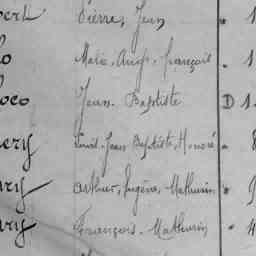 Pierre, Jean
Marie, Ange, François
oco Jean-Baptiste D 1
ery Louis-Jean Baptiste, Honoré 8
ry Arthur, Eugène-Mathurin 9
ry François-Mathurin 4